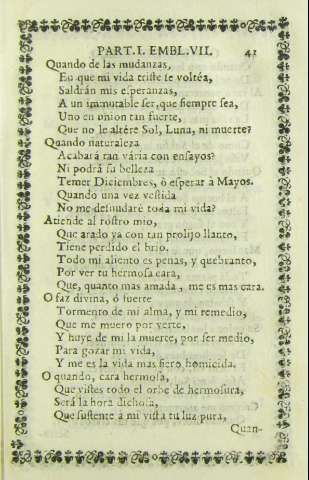 PART.I. EMBL.VII. 41
Quando de las mudanzas,
En que mi vida triste se voltéa,
Saldrán mis esperanzas,
A un immutable ser, que siempre sea,
Uno en union tan fuerte,
Que no le altére Sol, Luna, ni muerte?
Quando naturaleza
Acabará tan vária con ensayos?
Ni podrá su belleza
Temer Diciembres, ò esperar à Mayos.
Quando una vez vestida
No me desnudaré toda mi vida?
Atiende al rostro mio,
Que arado ya con tan prolijo llanto,
Tiene perdido el brio.
Todo mi aliento es penas, y quebranto,
Por ver tu hermosa cara,
Que, quanto mas amada, me es mas cara.
O faz divina, ó fuerte
Tormento de mi alma, y mi remedio,
Que me muero por verte,
Y huye de mi la muerte, por ser medio,
Para gozar mi vida,
Y me es la vida mas fiero homicida.
O quando, cara hermosa,
Que vistes todo el orbe de hermosura,
Será la hora dichosa,
Que sustente a mi vista tu luz pura,
Quan-